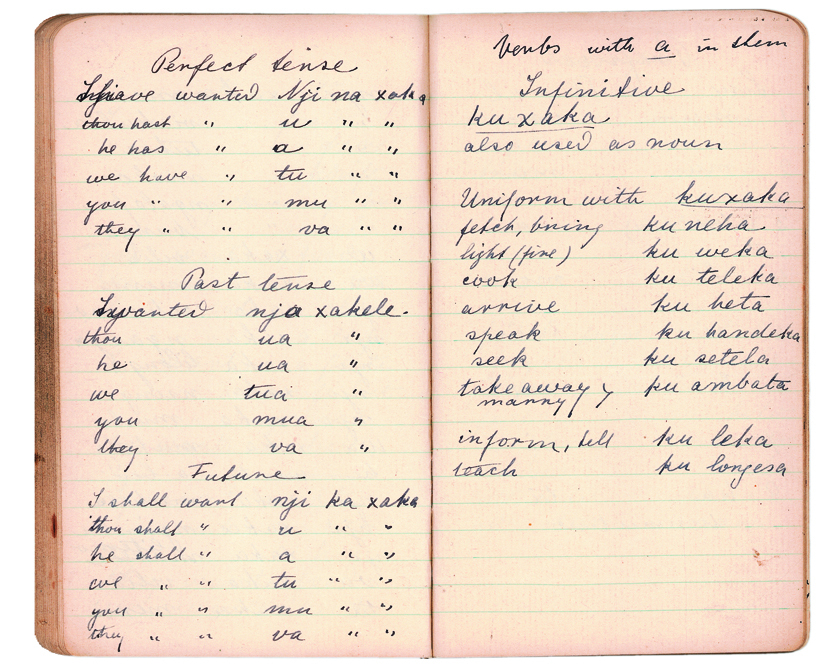 Perfect tense
I have wanted Nji na xaka
thou hast " u " "
he has " a " "
we have " tu " "
you " " mu " "
they " " va " "
Past tense
I wanted nja xakele.
thou ua "
he ua "
we tua "
you mua "
they va "
Future
I shall want nji ka xaka
thou shall " u " "
he shall " a " "
we " " tu " "
you " " mu " "
they " " va " "
Verbs with a in them
Infinitive
ku xaka
also used as noun
Uniform with kuxaka
fetch, bring ku neha
light (fire) ku weka
cook ku teleka
arrive ku heta
speak ku handeka
seek ku setela
take away, ku ambata
marry
inform, tell ku leka
teach ku longesa